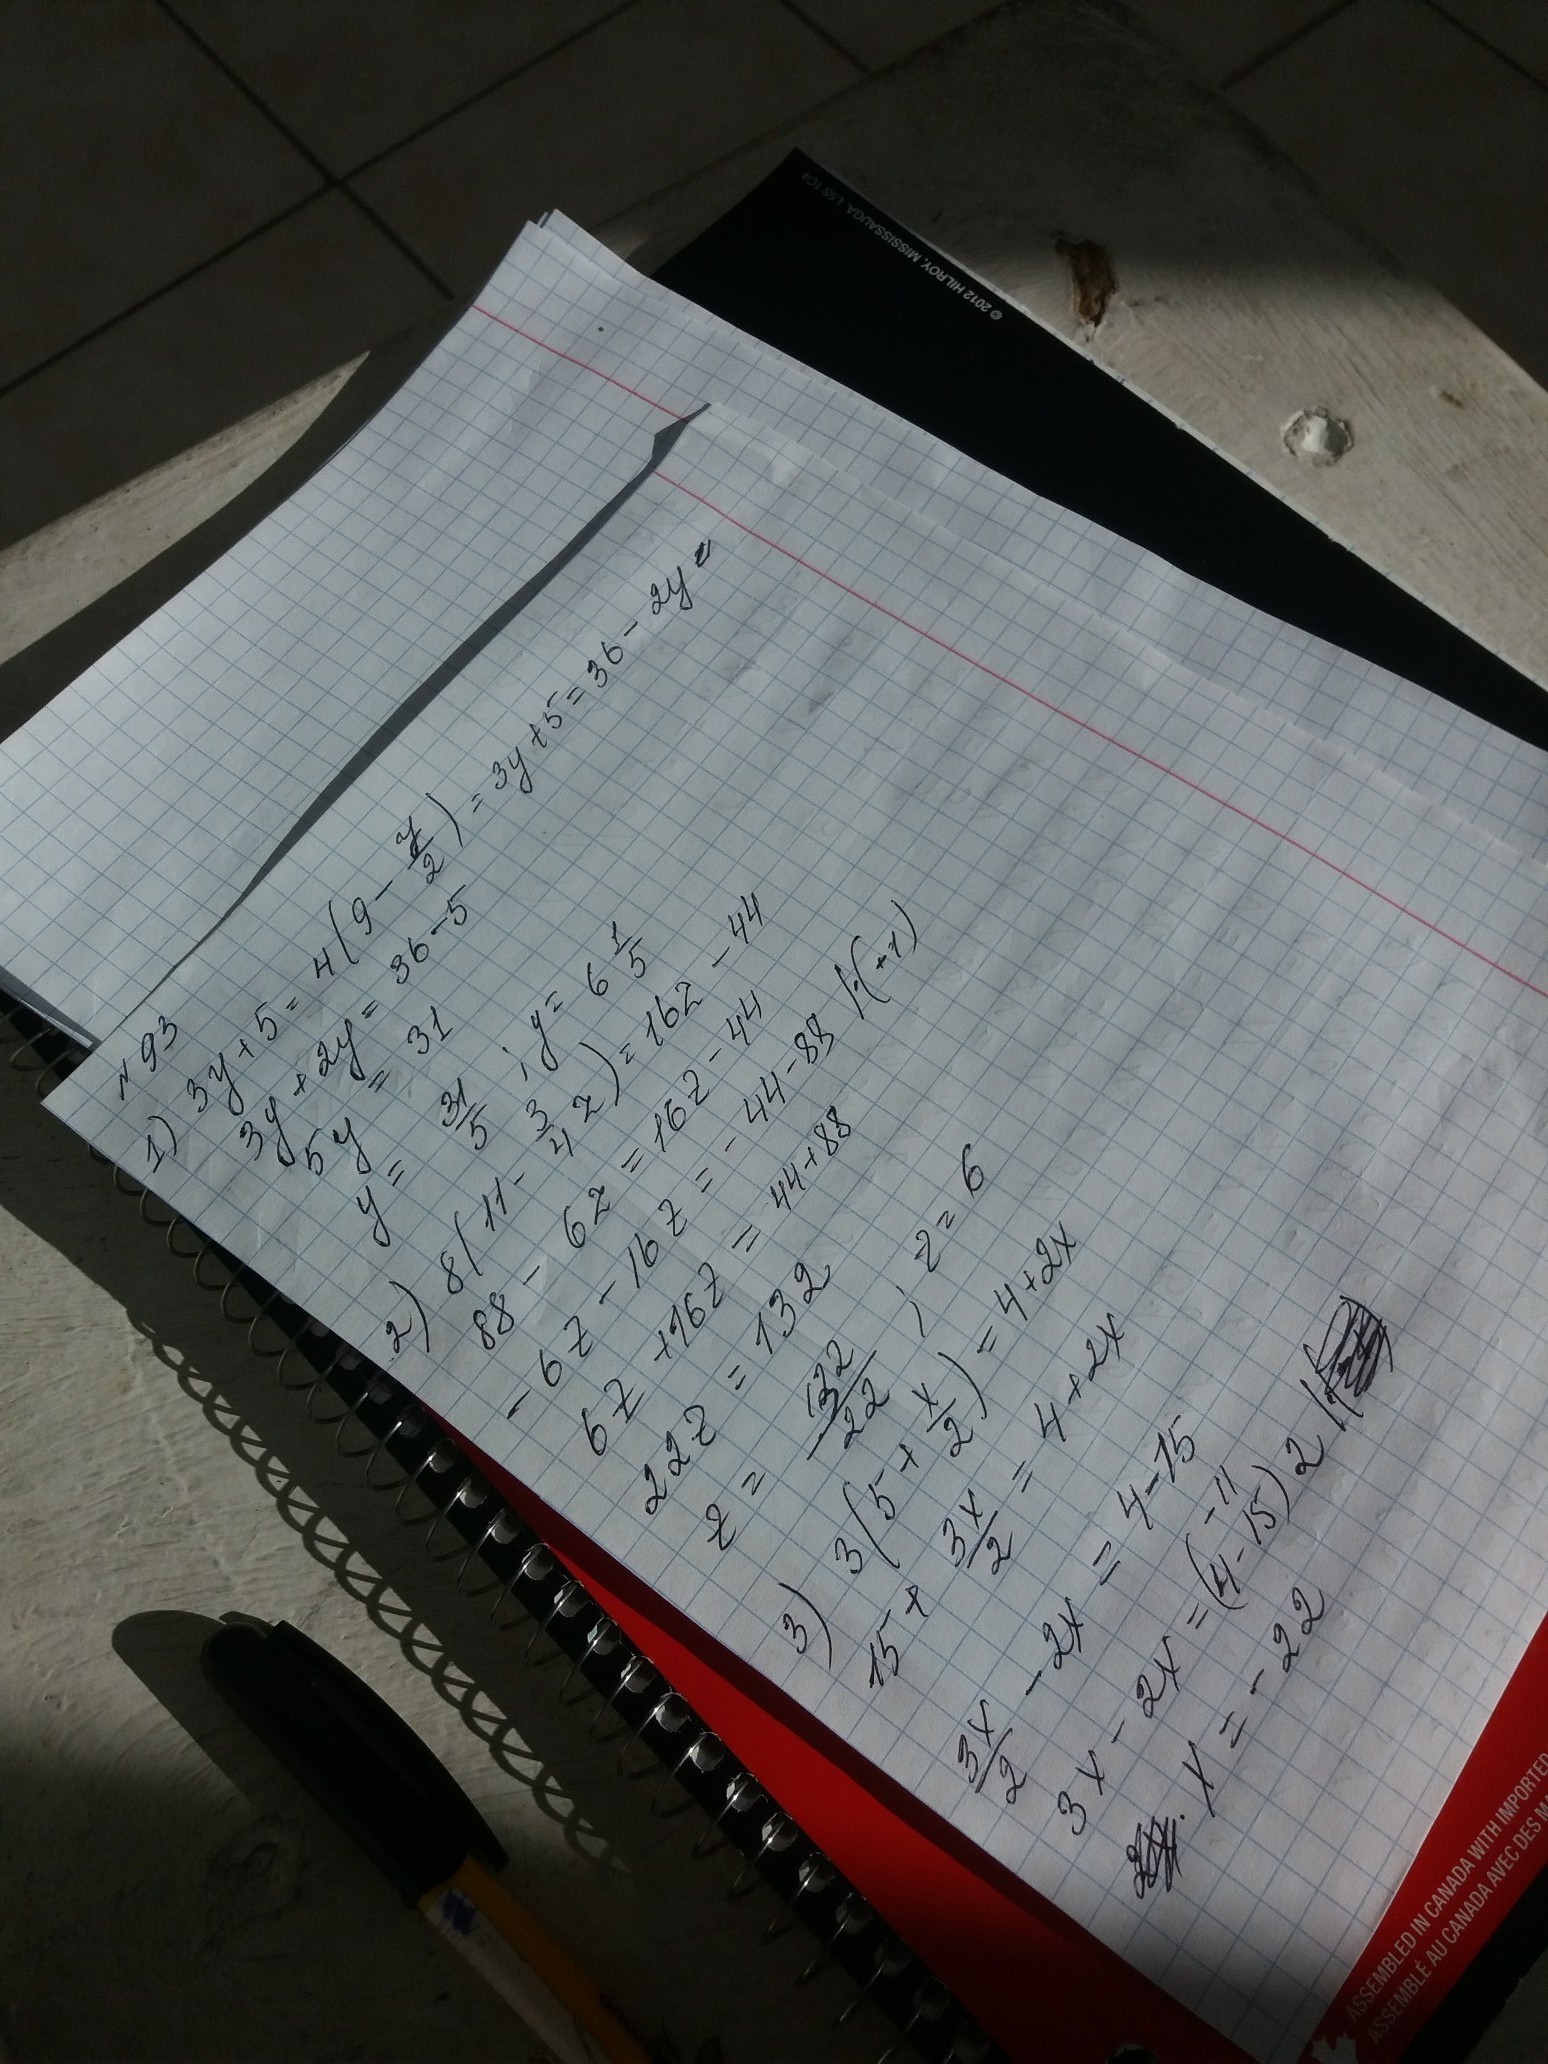 © 2012 HILROY, MISSISSAUGA, L5S 1C4
№ 93
1) 3y + 5 = 4(9 - y/2) = 3y + 5 = 36 - 2y =
3y + 2y = 36 - 5
5y = 31
y = 31/5 ; y = 6 1/5
2) 8(11 - 3/4 z) = 16z - 44
88 - 6z = 16z - 44
- 6z - 16z = - 44 - 88 |·(+1)
6z + 16z = 44 + 88
22z = 132
z = 132/22 ; z = 6
3) 3(5 + x/2) = 4 + 2x
15 + 3x/2 = 4 + 2x
3x/2 - 2x = 4 - 15
-11
3x - 2x = (4 - 15) 2
x = - 22
ASSEMBLED IN CANADA WITH IMPORTED
ASSEMBLÉ AU CANADA AVEC DES